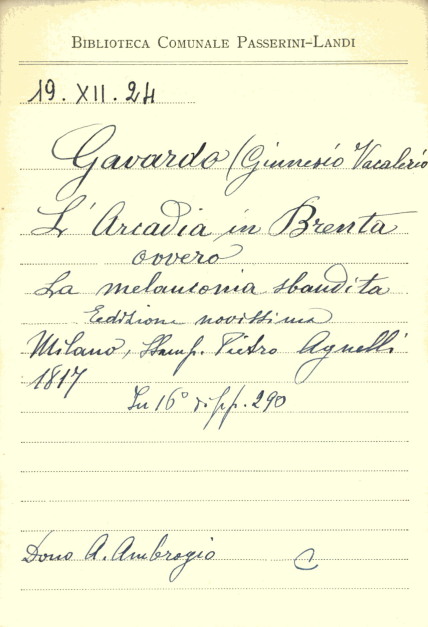 BIBLIOTECA COMUNALE PASSERINI-LANDI
19. XII. 24
Gavardo (Ginnesio Vacalerio
L'Arcadia in Brenta
ovvero
La melanconia sbandita
Eedizione novissima
Milano, Stamp. Pietro Agnelli
1817
In 16° di pp. 290
Dono A. Ambrogio C